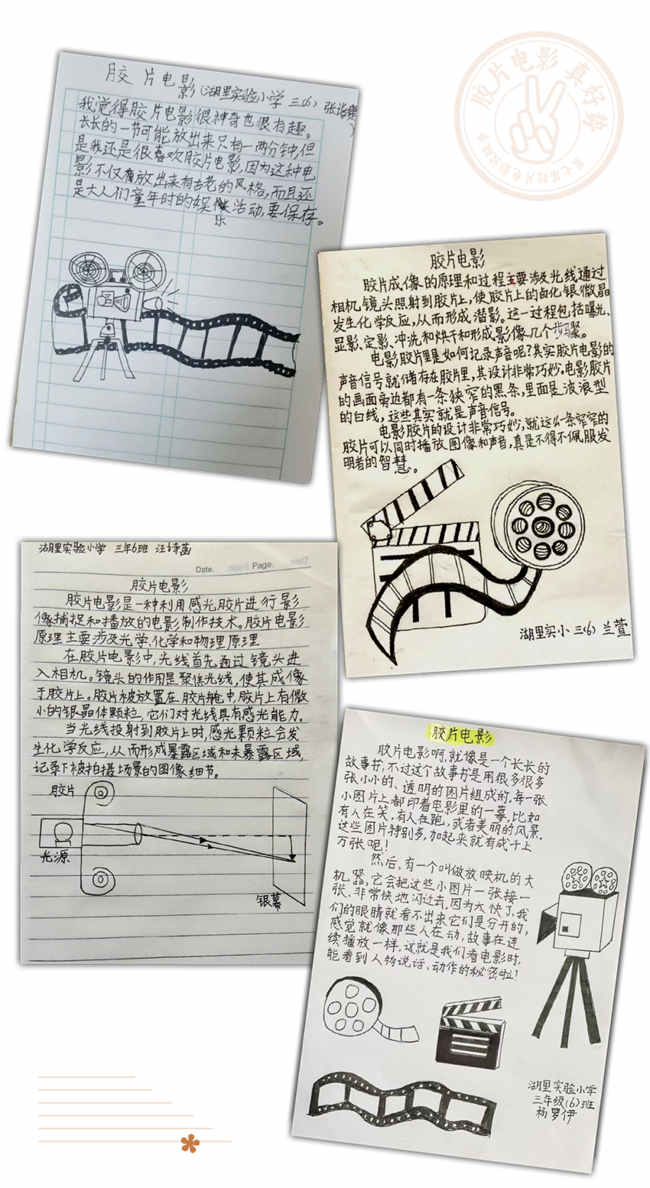 胶片电影 真好学
胶片电影
(湖里实验小学 三(6) 张
我觉得胶片电影很神奇也很有趣。
长长的一节可能放出来只有一两分钟,但
是我还是很喜欢胶片电影,因为这种电
影不仅 放出来有古老的风格,而且还
是大人们童年时的娱乐活动,要保存。
胶片电影
胶片成像的原理和过程主要涉及光线通过
相机镜头照射到胶片上,使胶片上的卤化银微晶
发生化学反应,从而形成潜影。这一过程包括曝光、
显影、定影、冲洗和烘干和形成影像几个步骤。
电影胶片里是如何记录声音呢?其实胶片电影的
声音信号就储存在胶片里,其设计非常巧妙。电影胶片
的画面旁边都有一条狭窄的黑条,里面是波浪型
的白线,这些其实就是声音信号。
电影胶片的设计非常巧妙,就这么一条窄窄的
胶片可以同时播放图像和声音,真是不得不佩服发
明者的智慧。
湖里实小 三(6) 兰萱
湖里实验小学 三年6班 汪诗菡
Date. Page.
胶片电影
胶片电影是一种利用感光胶片进行影
像捕捉和播放的电影制作技术。胶片电影
原理主要涉及光学、化学和物理原理
在胶片电影中,光线首先通过镜头进
入相机。镜头的作用是聚焦光线,使其成像
于胶片上。胶片被放置在胶片舱中,胶片上有微
小的银晶体颗粒,它们对光线具有感光能力。
当光线投射到胶片上时,感光颗粒会发
生化学反应,从而形成暴露区域和未暴露区域,
记录下被拍摄场景的图像细节。
胶片
光源
银幕
胶片电影
胶片电影啊,就像是一个长长的
故事书,不过这个故事书是用很多很多
张小小的、透明的图片组成的,每一张
小图片上都印着电影里的一幕,比如
有人在笑,有人在跑,或者美丽的风景。
这些图片特别多,加起来就有成千上
万张呢!
然后,有一个叫做放映机的大
机器,它会把这些小图片一张接一
张、非常快地闪过去,因为太快了,我
们的眼睛就看不出来它们是分开的,
感觉就像那些人在动,故事在连
续播放一样。这就是我们看电影时,
能看到人物说话、动作的秘密啦!
湖里实验小学
三年级(6)班
杨罗伊